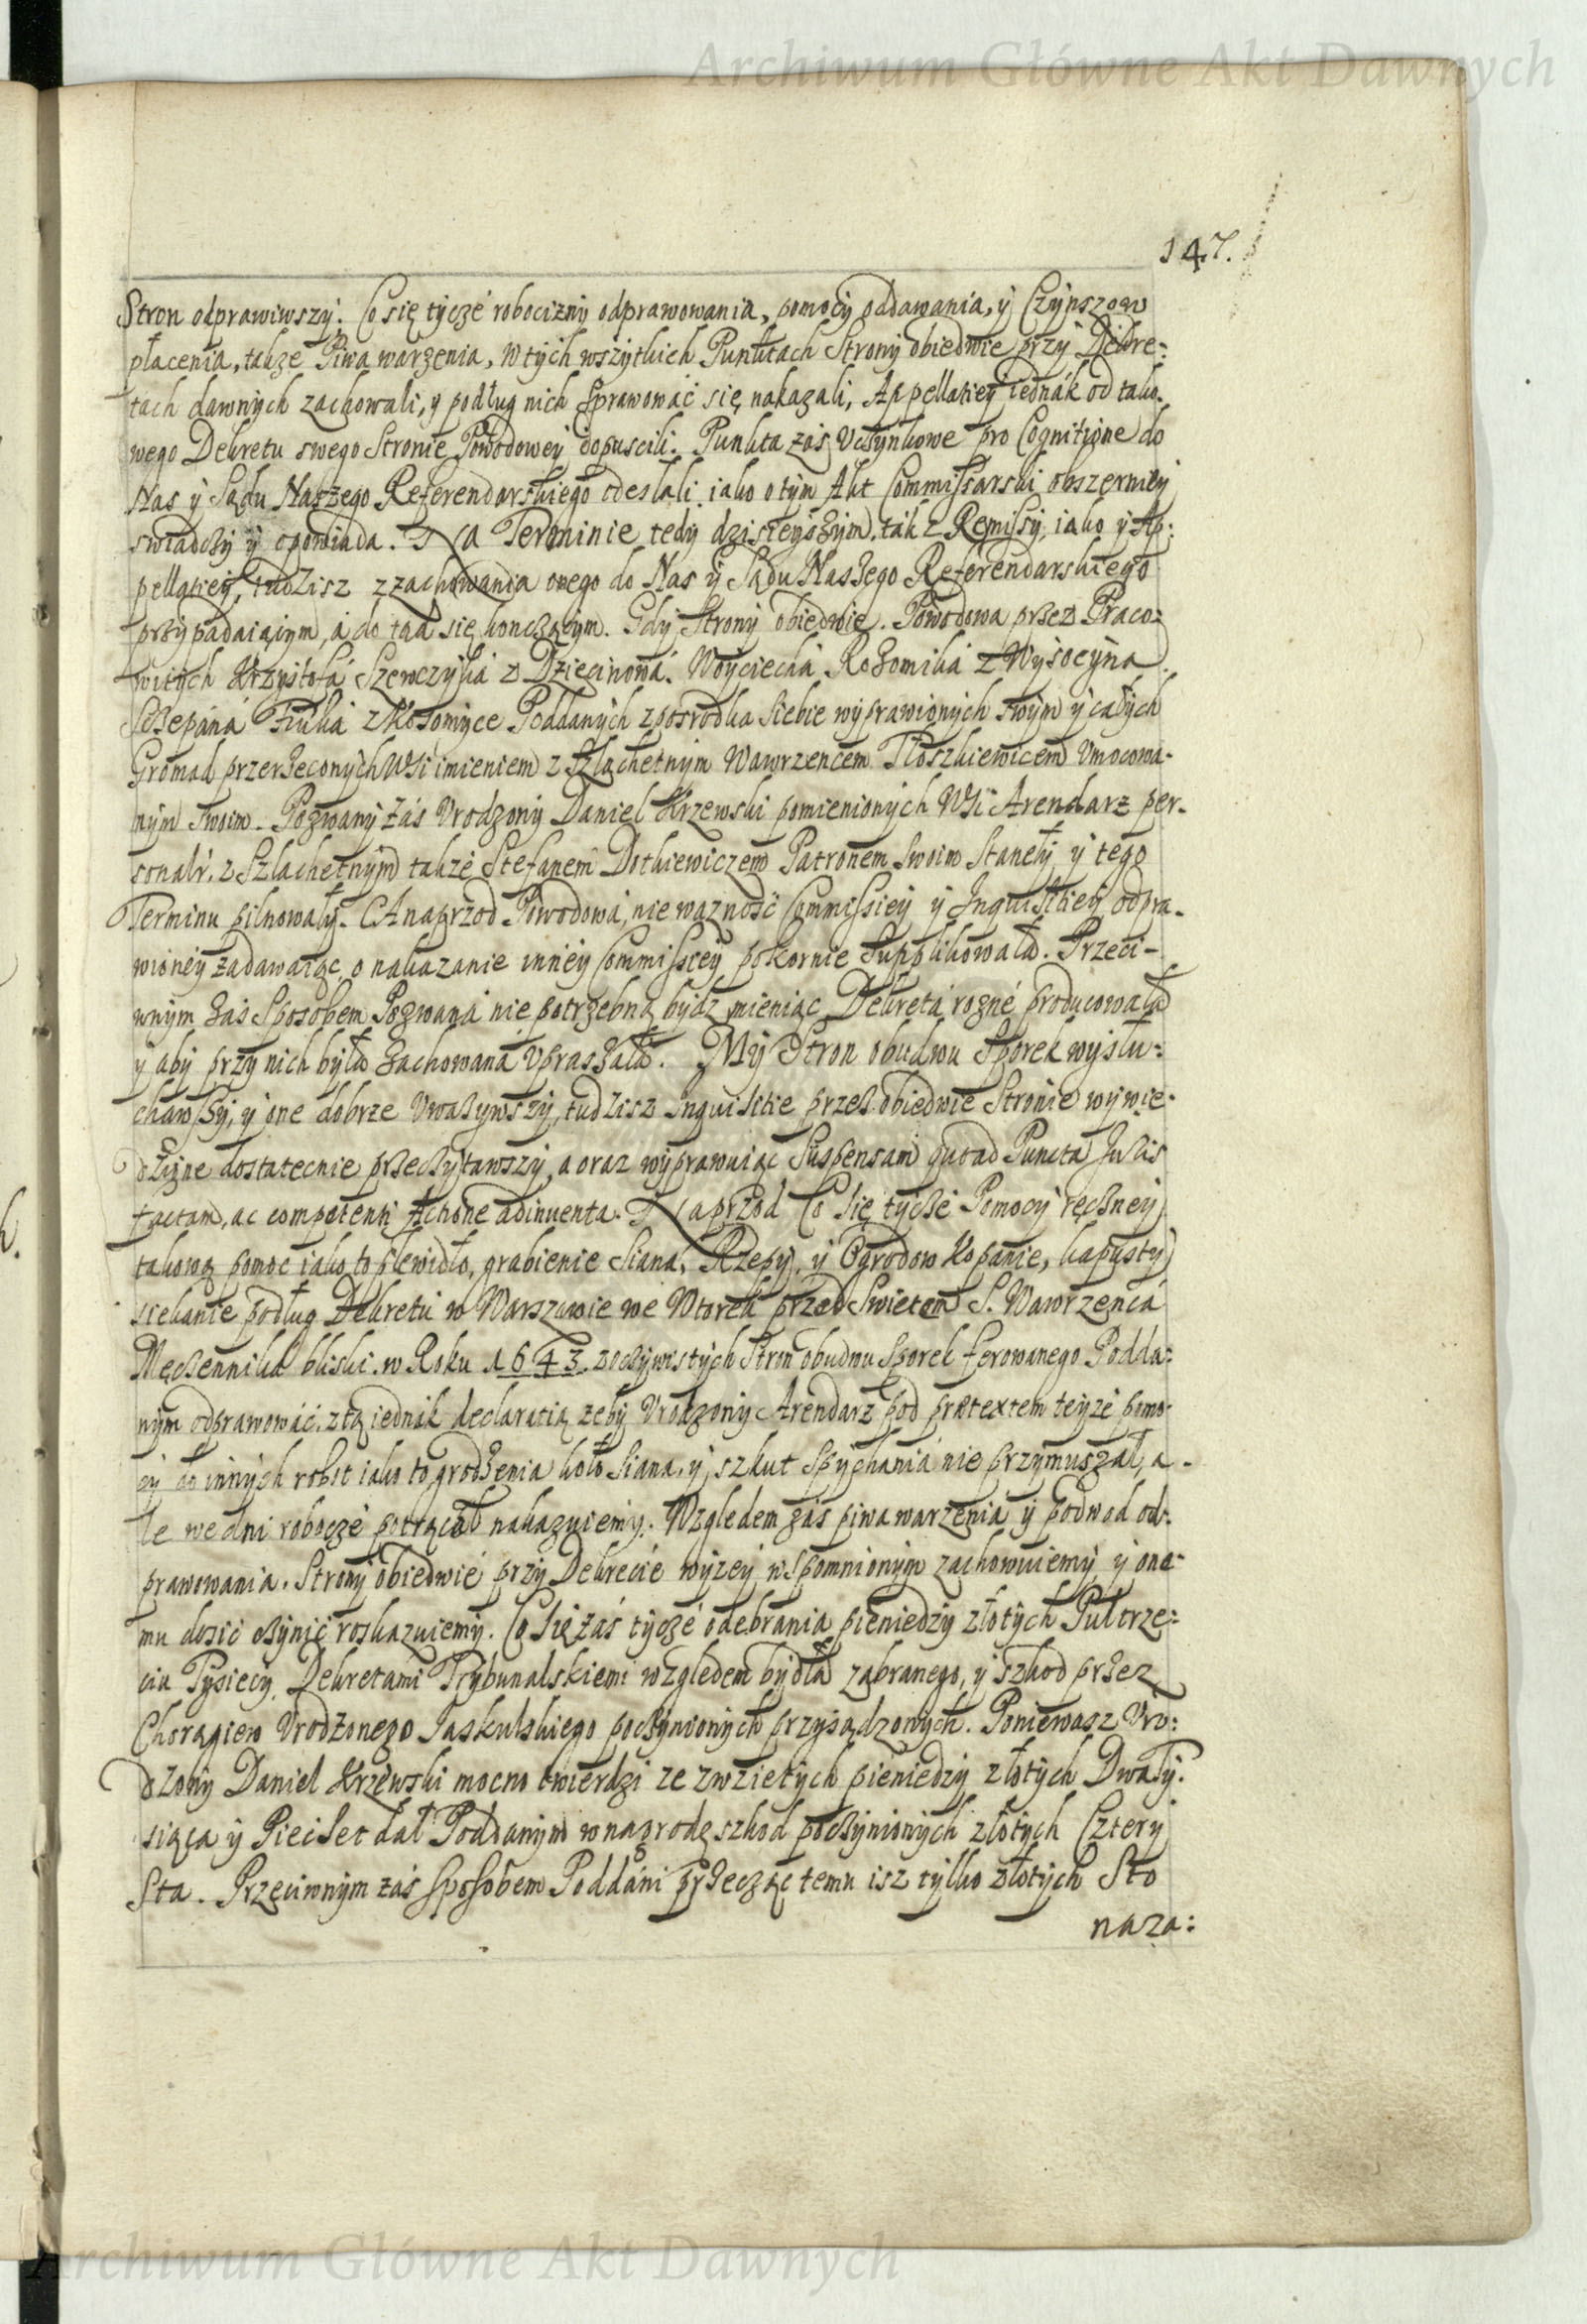 Archiwum Główne Akt Dawnych
147.
Stron odprawiwszy. Co się tycze robocizny odprawowania, pomocy oddawania, y Czynszow
płacenia, także Piwa warzenia, w tych wszytkich Punktach Strony obiedwie przy Dekre:
tach dawnych zachowali, y podług nich sprawować się nakazali, Appellatiey iednák od tako.
wego Dekretu swego Stronie Powodowey dopuscili. Punkta zaś Vczynkowe pro Cognitione do
Nas y Sądu Naszego Referendarskiego odesłali iako o tym Akt Commissarski obszerniey
swiadczy y opowiada. Na Terminie tedy dzisieyszym, ták z Remissy, iako y Ap:
pellatiey, tudzisz z zachowania onego do Nas y Sądu Naszego Referendarskiego
przypadaiąiym, á do tąd się konczącym. Gdy Strony obiedwie. Powodowa przez Praco:
witych Krzysztofá Szewczyká z Dziecinowá. Woyciechá Rogomiká z Wysocyna
Sczepáná Fiuká z Kosomyce Poddanych z posrodka siebie wyprawionych swym y całych
Gromad przerzeconych Wsi imieniem z Szlachetnym Wawrzencem Tłoszkiewicem Vmocowa-
nym swoim. Pozwany záś Vrodzony Daniel Krzewski pomienionych Wsi Arendarz per-
sonalr. z Szlachetnym także Stefanem Dotkiewiczem Patronem swoim Stanęły y tego
Terminu pilnowały. A naprzod Powodowá, nie ważność Commissiey y Inquisitiey odpra-
wioney zadawaiąc o nakazanie inńey Commissiey pokornie supplikowała. Przeci-
wnym zaś Sposobem Pozwaná nie potrzebną bydz mieniąc Dekretá rozné producowała
y aby przy nich była zachowaná Vpraszała. My Stron obudwu Sporek wysłu:
chawszy, y one dobrze Vważywszy, tudzisz Inquisitie przez obiedwie Stronie wywie-
dzione dostatecnie przeczytawszy, a oraz wyprawuiąc Suspensam quoad Puncta Iuris
factam, ac competenti Actione adinuenta. Naprzod Co się tycze Pomocy ręczney
takową pomoc iako to plewidło, grabienie Siana, Rzepy, y Ogrodow Kopanie, kapusty
siekanie podług Dekretu w Warszawie we Wtorek przed Swietem S. Wawrzenca
Męczenniká bliski. w Roku 1643. z oczywistych Stron obudwu Sporek ferowanego Podda:
nym odprawować. z tą iednák declaratią zeby Vrodzony Arendarz pod prætextem teyze pomo-
cy do innych robot iako to grodzenia koło Siana, y szkut spychania nie przymuszał, a-
le we dni robocze potrącał nakazuiemy. Względem zas piwa warzenia y podwod od:
prawowania. Strony obiedwie przy Dekrecie wyzey wspomnionym zachowuiemy y one-
mu dosić czynić roskazuiemy. Co się záś tycze odebrania pieniedzy złotych Pułtrze:
cia Tysiecy Dekretami Trybunalskiemi względem bydła zabranego, y szkod przez
Chorągiew Vrodzonego Jaskulskiego poczynionych przysądzonych. Poniewasz Vro:
dzony Daniel Krzewski mocno twierdzi ze zwzietych pieniedzy złotych Dwaty:
siąca y Piecset dał Poddanym w nagrodę szkod poczynionych złotych Cztery
Sta. Przeciwnym záś Sposobem Poddáni przecząc temu isz tylko złotych Sto
naza:
Archiwum Główne Akt Dawnych